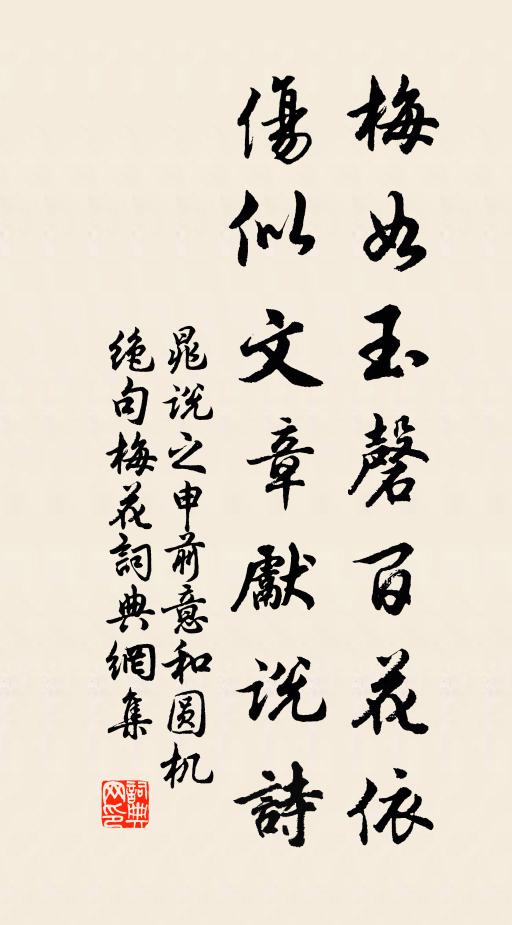 梅如玉磬百花依
傷似文章獻說詩
晁說之申前意和圆机
絶句梅花詞典網集
詞典网印